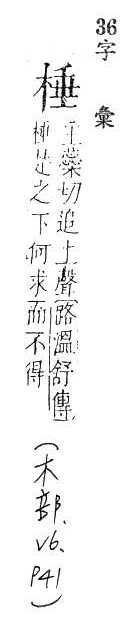 36
字彙
棰
主蘂切追上聲路溫舒傳
棰楚之下何求而不得
(木部、
V6、
P41)